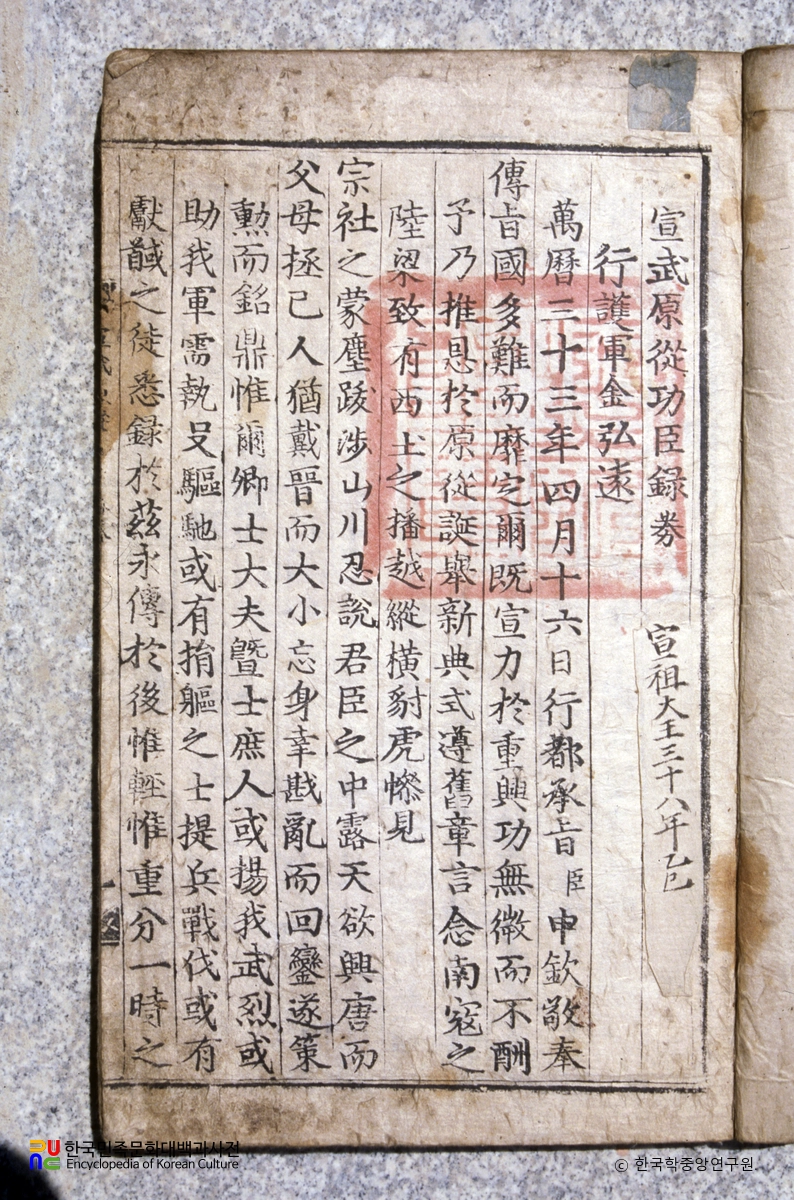 宣武原從功臣錄券
宣祖大王三十八年乙巳
行護軍金弘遠
萬曆三十三年四月十六日行都承旨臣申欽敬奉
傳旨國多難而靡定爾旣宣力於重興功無微而不酬
予乃推恩於原從誕擧新典式遵舊章言念南寇之
陸梁致有西土之播越縱橫豺虎慘見
宗社之蒙塵跋涉山川忍說君臣之中露天欲興唐而
父母拯己人猶戴晉而大小忘身幸戡亂而回鑾遂策
勲而銘鼎惟爾卿士大夫曁士庶人或揚我武烈或
助我軍需執殳驅馳或有捐軀之士提兵戰伐或有
獻馘之徒悉錄於玆永傳於後惟輕惟重分一時之
한국민족문화대백과사전
Encyclopedia of Korean Culture
© 한국학중앙연구원